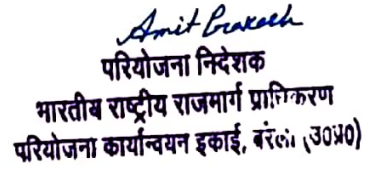 Amit Prakash
परियोजना निदेशक
भारतीय राष्ट्रीय राजमार्ग प्राधिकरण
परियोजना कार्यान्वयन इकाई, बरेली (उ0प्र0)